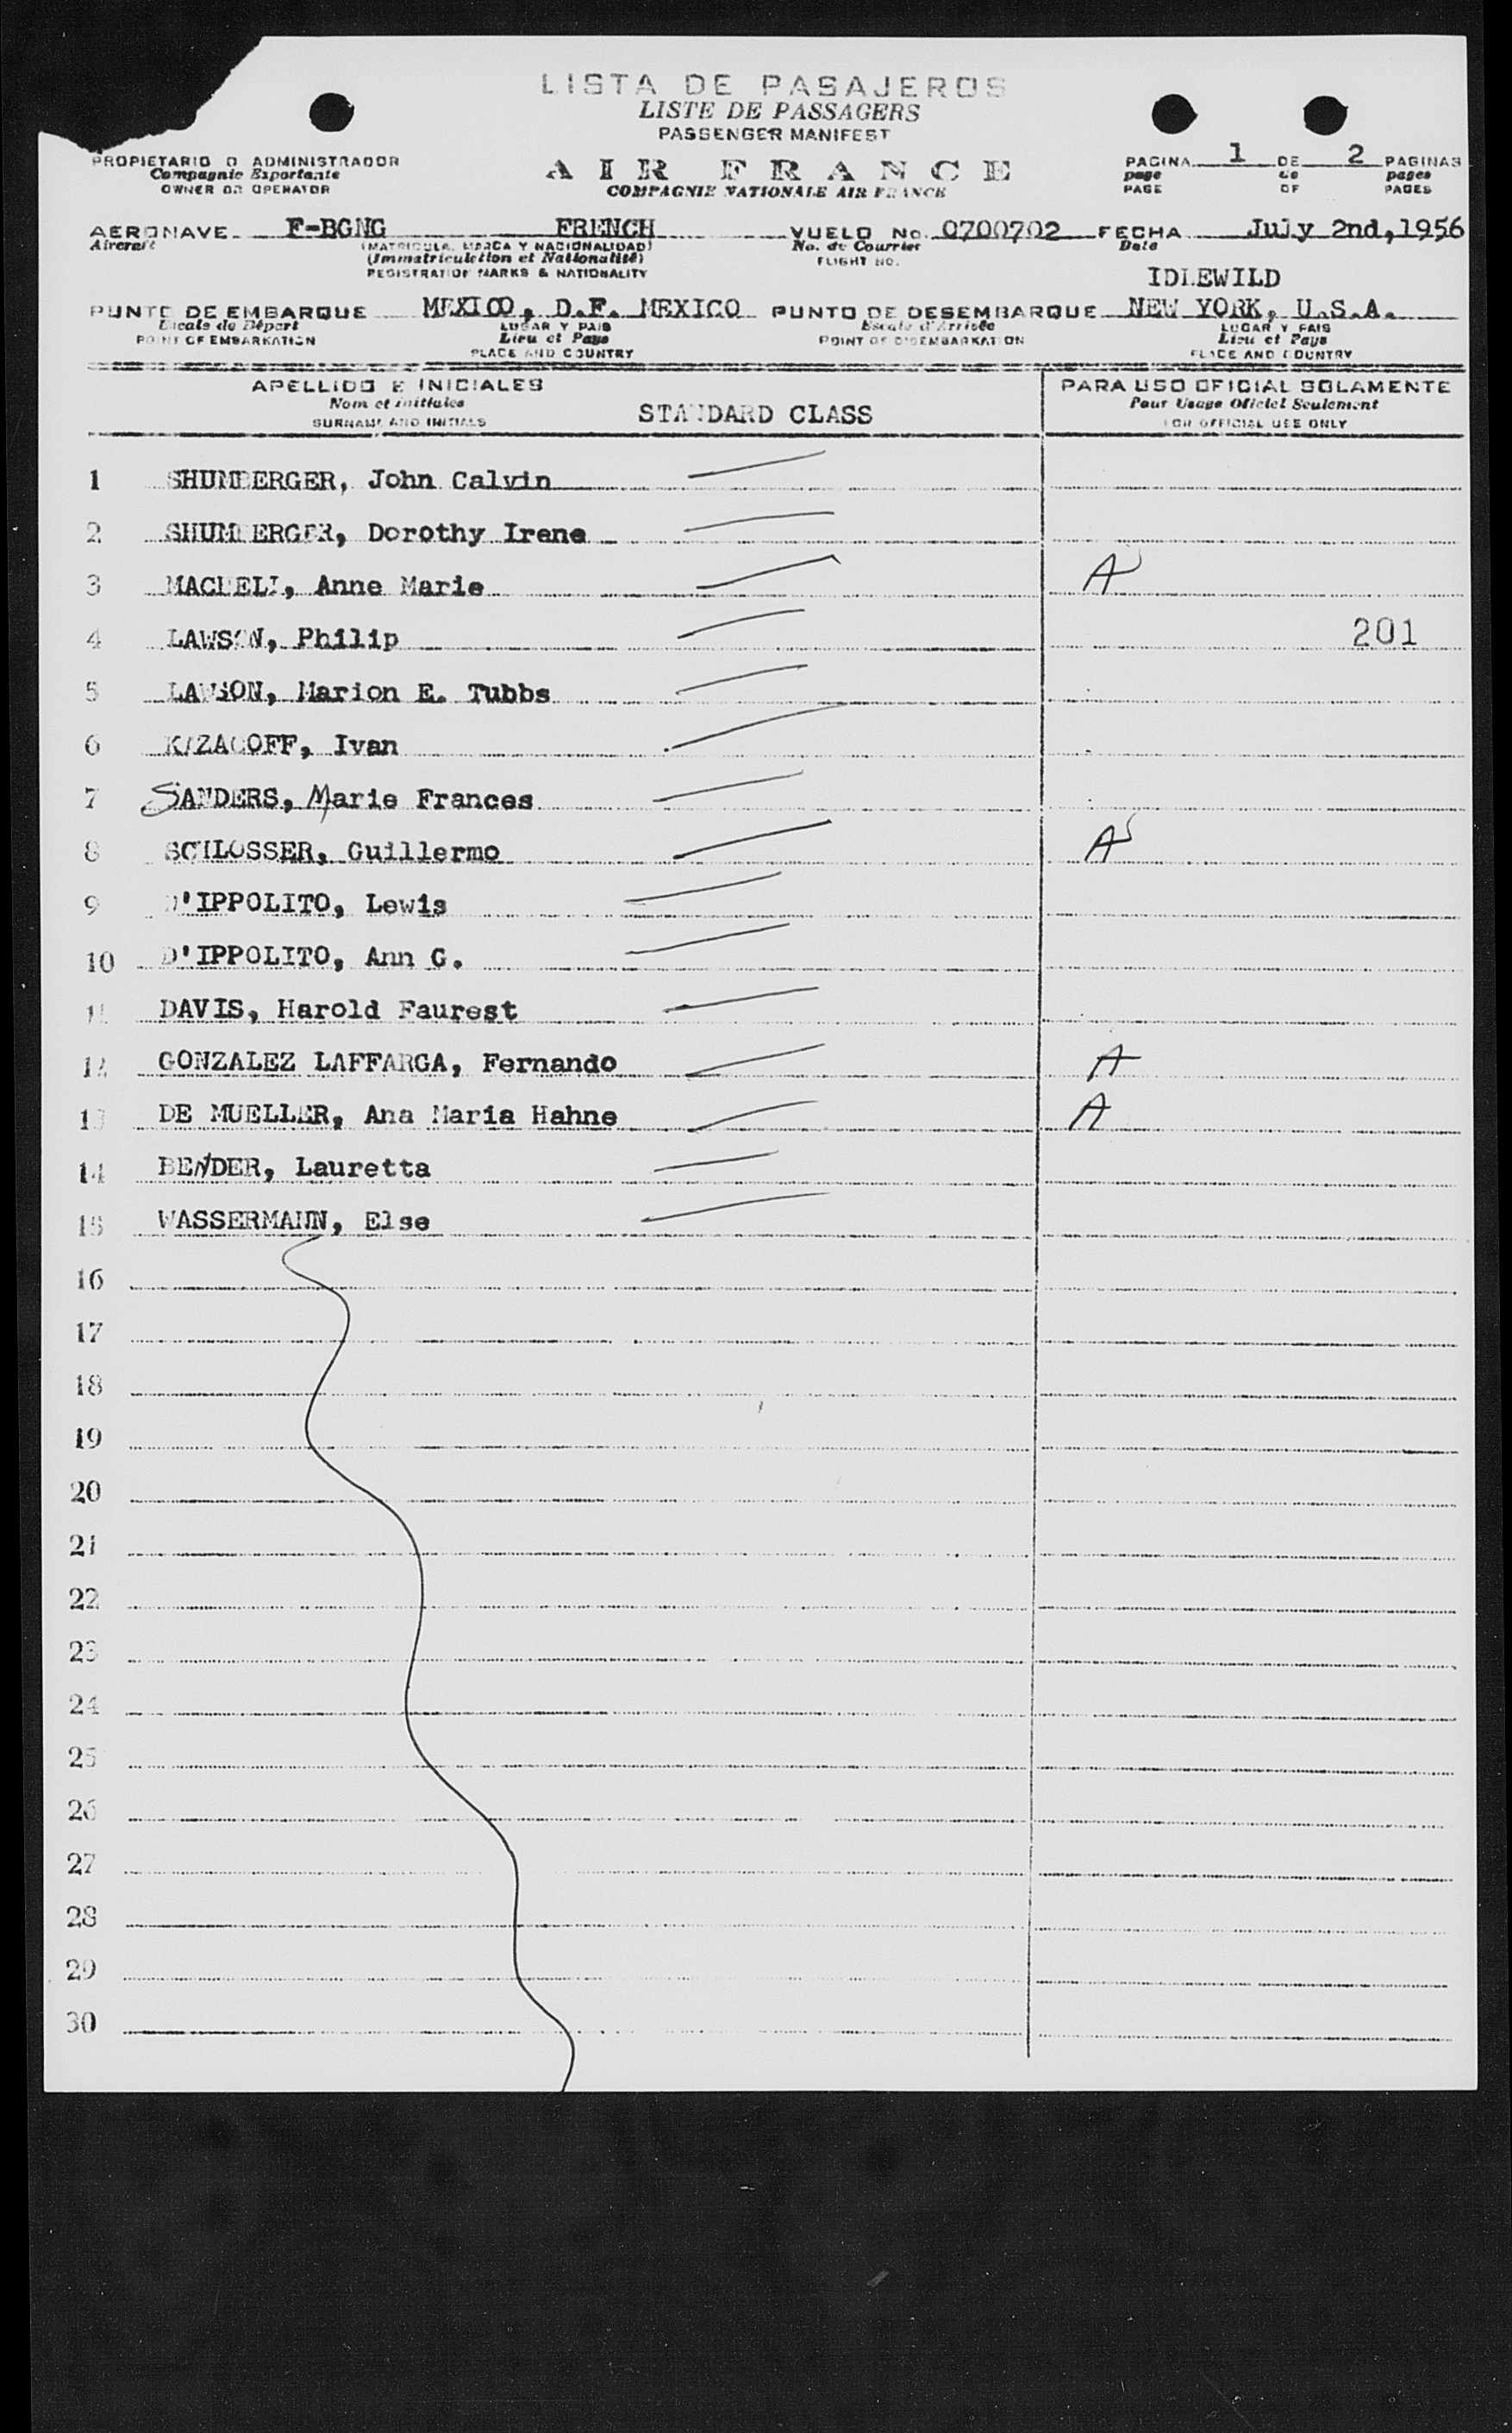 LISTA DE PASAJEROS
LISTE DE PASSAGERS
PASSENGER MANIFEST
PROPIETARIO O ADMINISTRADOR
Compagnie Exportante
OWNER OR OPERATOR
AIR FRANCE
COMPAGNIE NATIONALE AIR FRANCE
PAGINA 1 DE 2 PAGINAS
page de pages
PAGE OF PAGES
AERONAVE F-BGNG FRENCH VUELO No. 0700702 FECHA July 2nd, 1956
Aircraft (MATRICULA, MARCA Y NACIONALIDAD) No. de Courrier Date
(Immatriculation et Nationalité) FLIGHT NO.
REGISTRATION MARKS & NATIONALITY
IDLEWILD
PUNTO DE EMBARQUE MEXICO, D.F. MEXICO PUNTO DE DESEMBARQUE NEW YORK, U.S.A.
Escale de Départ LUGAR Y PAIS Escale d'Arrivée LUGAR Y PAIS
POINT OF EMBARKATION Lieu et Pays POINT OF DISEMBARKATION Lieu et Pays
PLACE AND COUNTRY PLACE AND COUNTRY
APELLIDO E INICIALES PARA USO OFICIAL SOLAMENTE
Nom et initiales STANDARD CLASS Pour Usage Officiel Seulement
SURNAME AND INITIALS FOR OFFICIAL USE ONLY
1 SHUMBERGER, John Calvin
2 SHUMBERGER, Dorothy Irene
3 Anne Marie A
4 LAWSON, Philip 201
5 LAWSON, Marion E. Tubbs
6 KAZACOFF, Ivan
7 SANDERS, Marie Frances
8 SCHLOSSER, Guillermo A
9 D'IPPOLITO, Lewis
10 D'IPPOLITO, Ann G.
11 DAVIS, Harold Faurest
12 GONZALEZ LAFFARGA, Fernando A
13 DE MUELLER, Ana Maria Hahne A
14 BENDER, Lauretta
15 WASSERMANN, Else
16
17
18
19
20
21
22
23
24
25
26
27
28
29
30